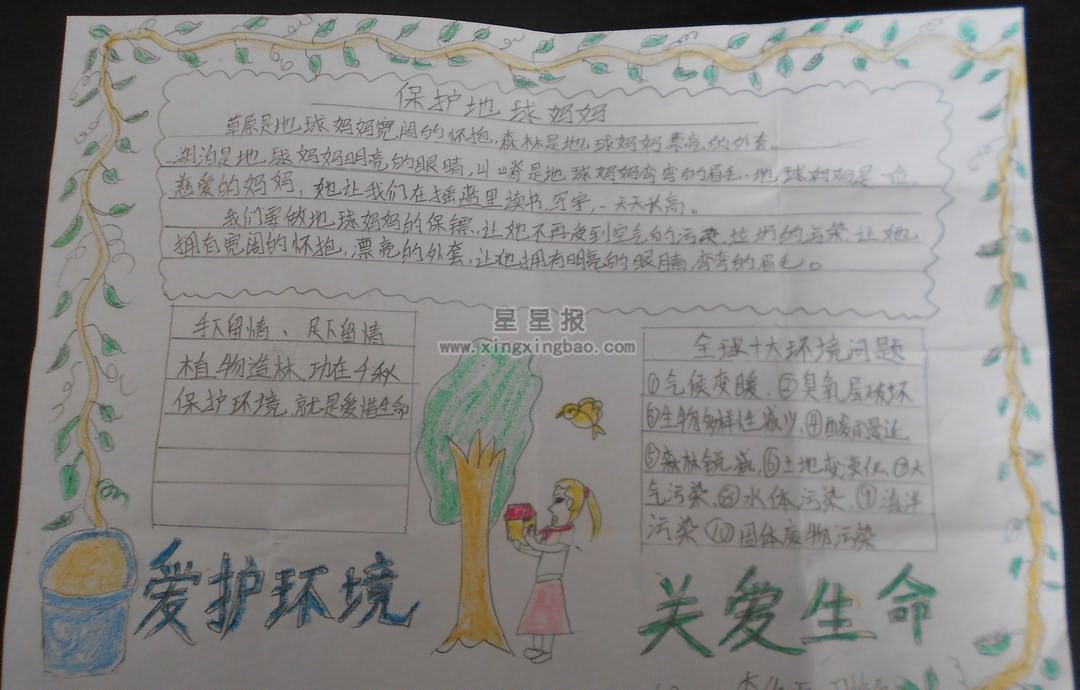 保护地球妈妈
草原是地球妈妈宽阔的怀抱,森林是地球妈妈漂亮的外套。
湖泊是地球妈妈明亮的眼睛,山脊是地球妈妈弯弯的眉毛,地球妈妈是一位
慈爱的妈妈,她让我们在摇篮里读书,写字,一天天长高。
我们要做地球妈妈的保镖,让她不再受到空气的污染,垃圾的污染,让她
拥有宽阔的怀抱,漂亮的外套,让她拥有明亮的眼睛,弯弯的眉毛。
手下留情、足下留情
植物造林,功在千秋
保护环境,就是爱惜生命
星星报
www.xingxingbao.com
全球十大环境问题
①气候变暖、②臭氧层破坏
③生物多样性减少、④酸雨蔓延
⑤森林锐减、⑥土地荒漠化、⑦大
气污染、⑧水体污染、⑨海洋
污染、⑩固体废物污染
爱护环境
关爱生命